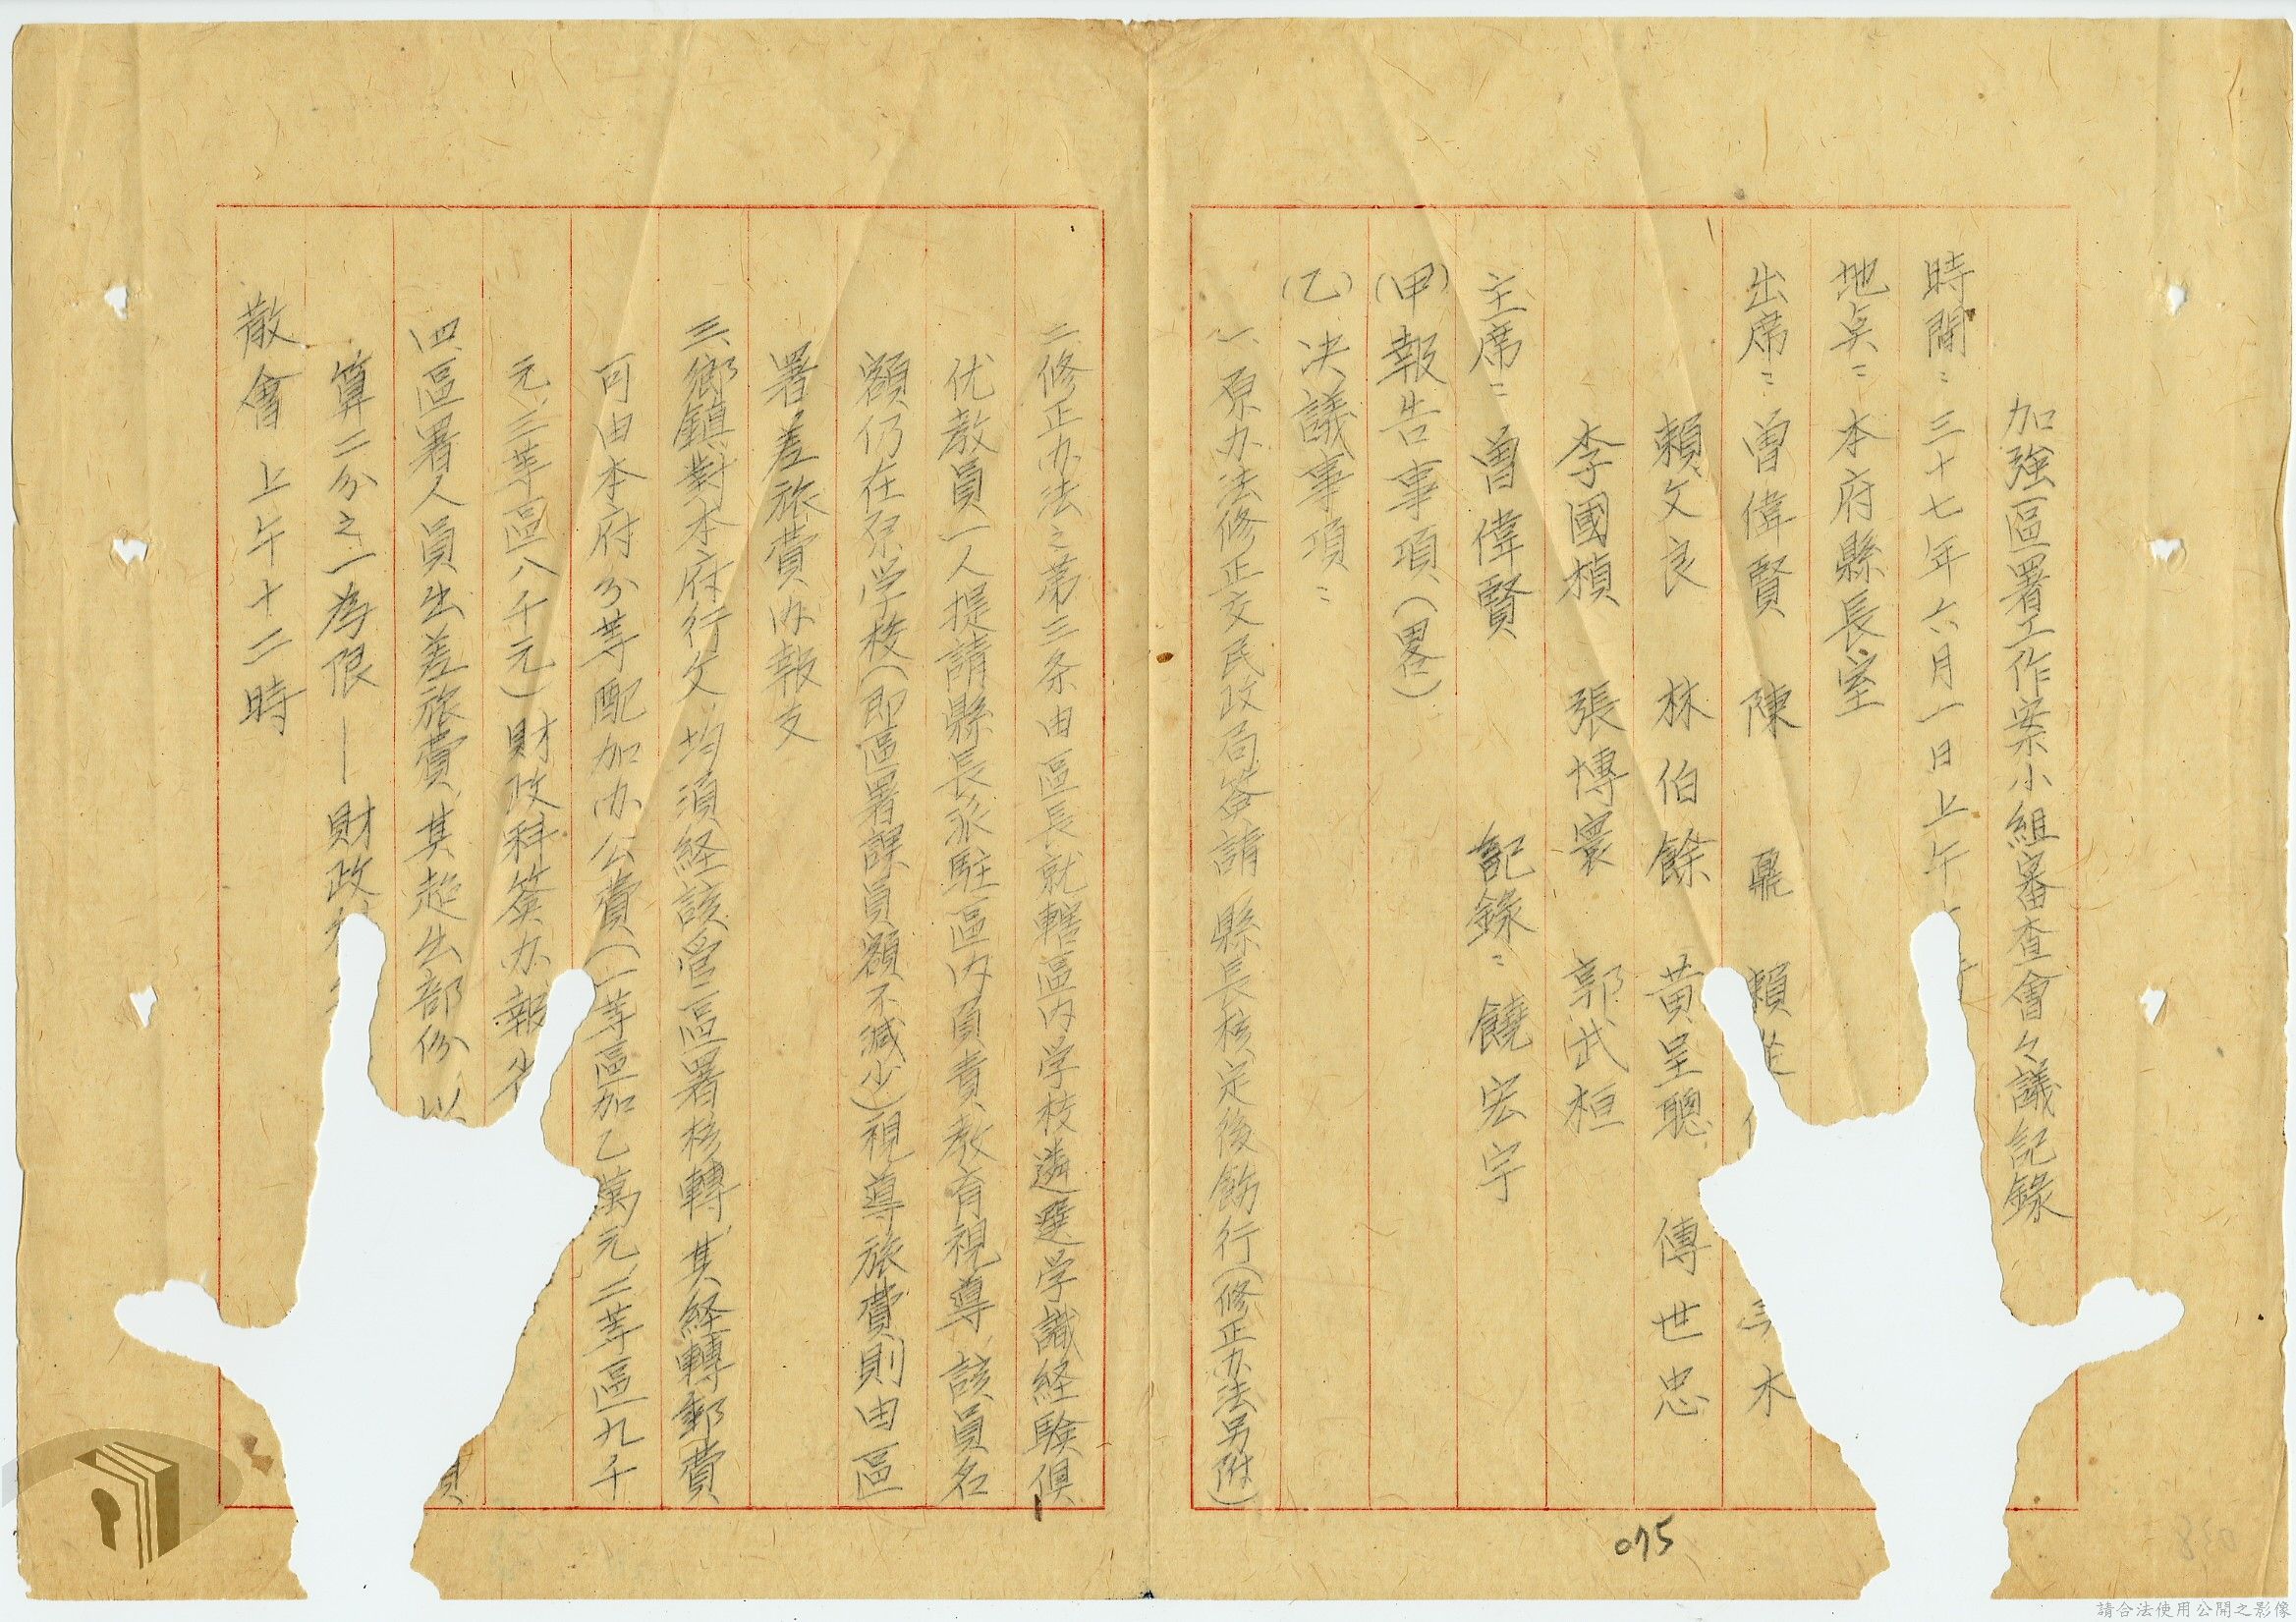 加強區署工作案小組審查會々議記錄
時間：三十七年六月一日上午
地点：本府縣長室
出席：曾偉賢 陳 鼎 賴 三 木
賴文良 林伯餘 黃呈聰 傅世忠
李國楨 張博寰 郭武桓
主席：曾偉賢 記錄：饒宏宇
(甲)報告事項(畧)
(乙)决議事項：
一、原办法修正交民政局簽請 縣長核定後飭行(修正办法另附)
二、修正办法之第三条由區長就轄區内学校遴選学識経驗俱
优教員一人提請縣長派駐區内負責教育視導、該員名
額仍在原学校(即區署誤員額不減少)視導旅費則由區
署差旅費内報支
三、鄉鎮對本府行文、均須経該管區署核轉、其経轉郵費
可由本府分等配加办公費(一等區加乙萬元、二等區九千
元、三等區八千元)財政科簽办報
四、區署人員出差旅費、其超出部份、以 預
算二分之一為限—財政
散會 上午十二時
075
038
請合法使用公開之影像